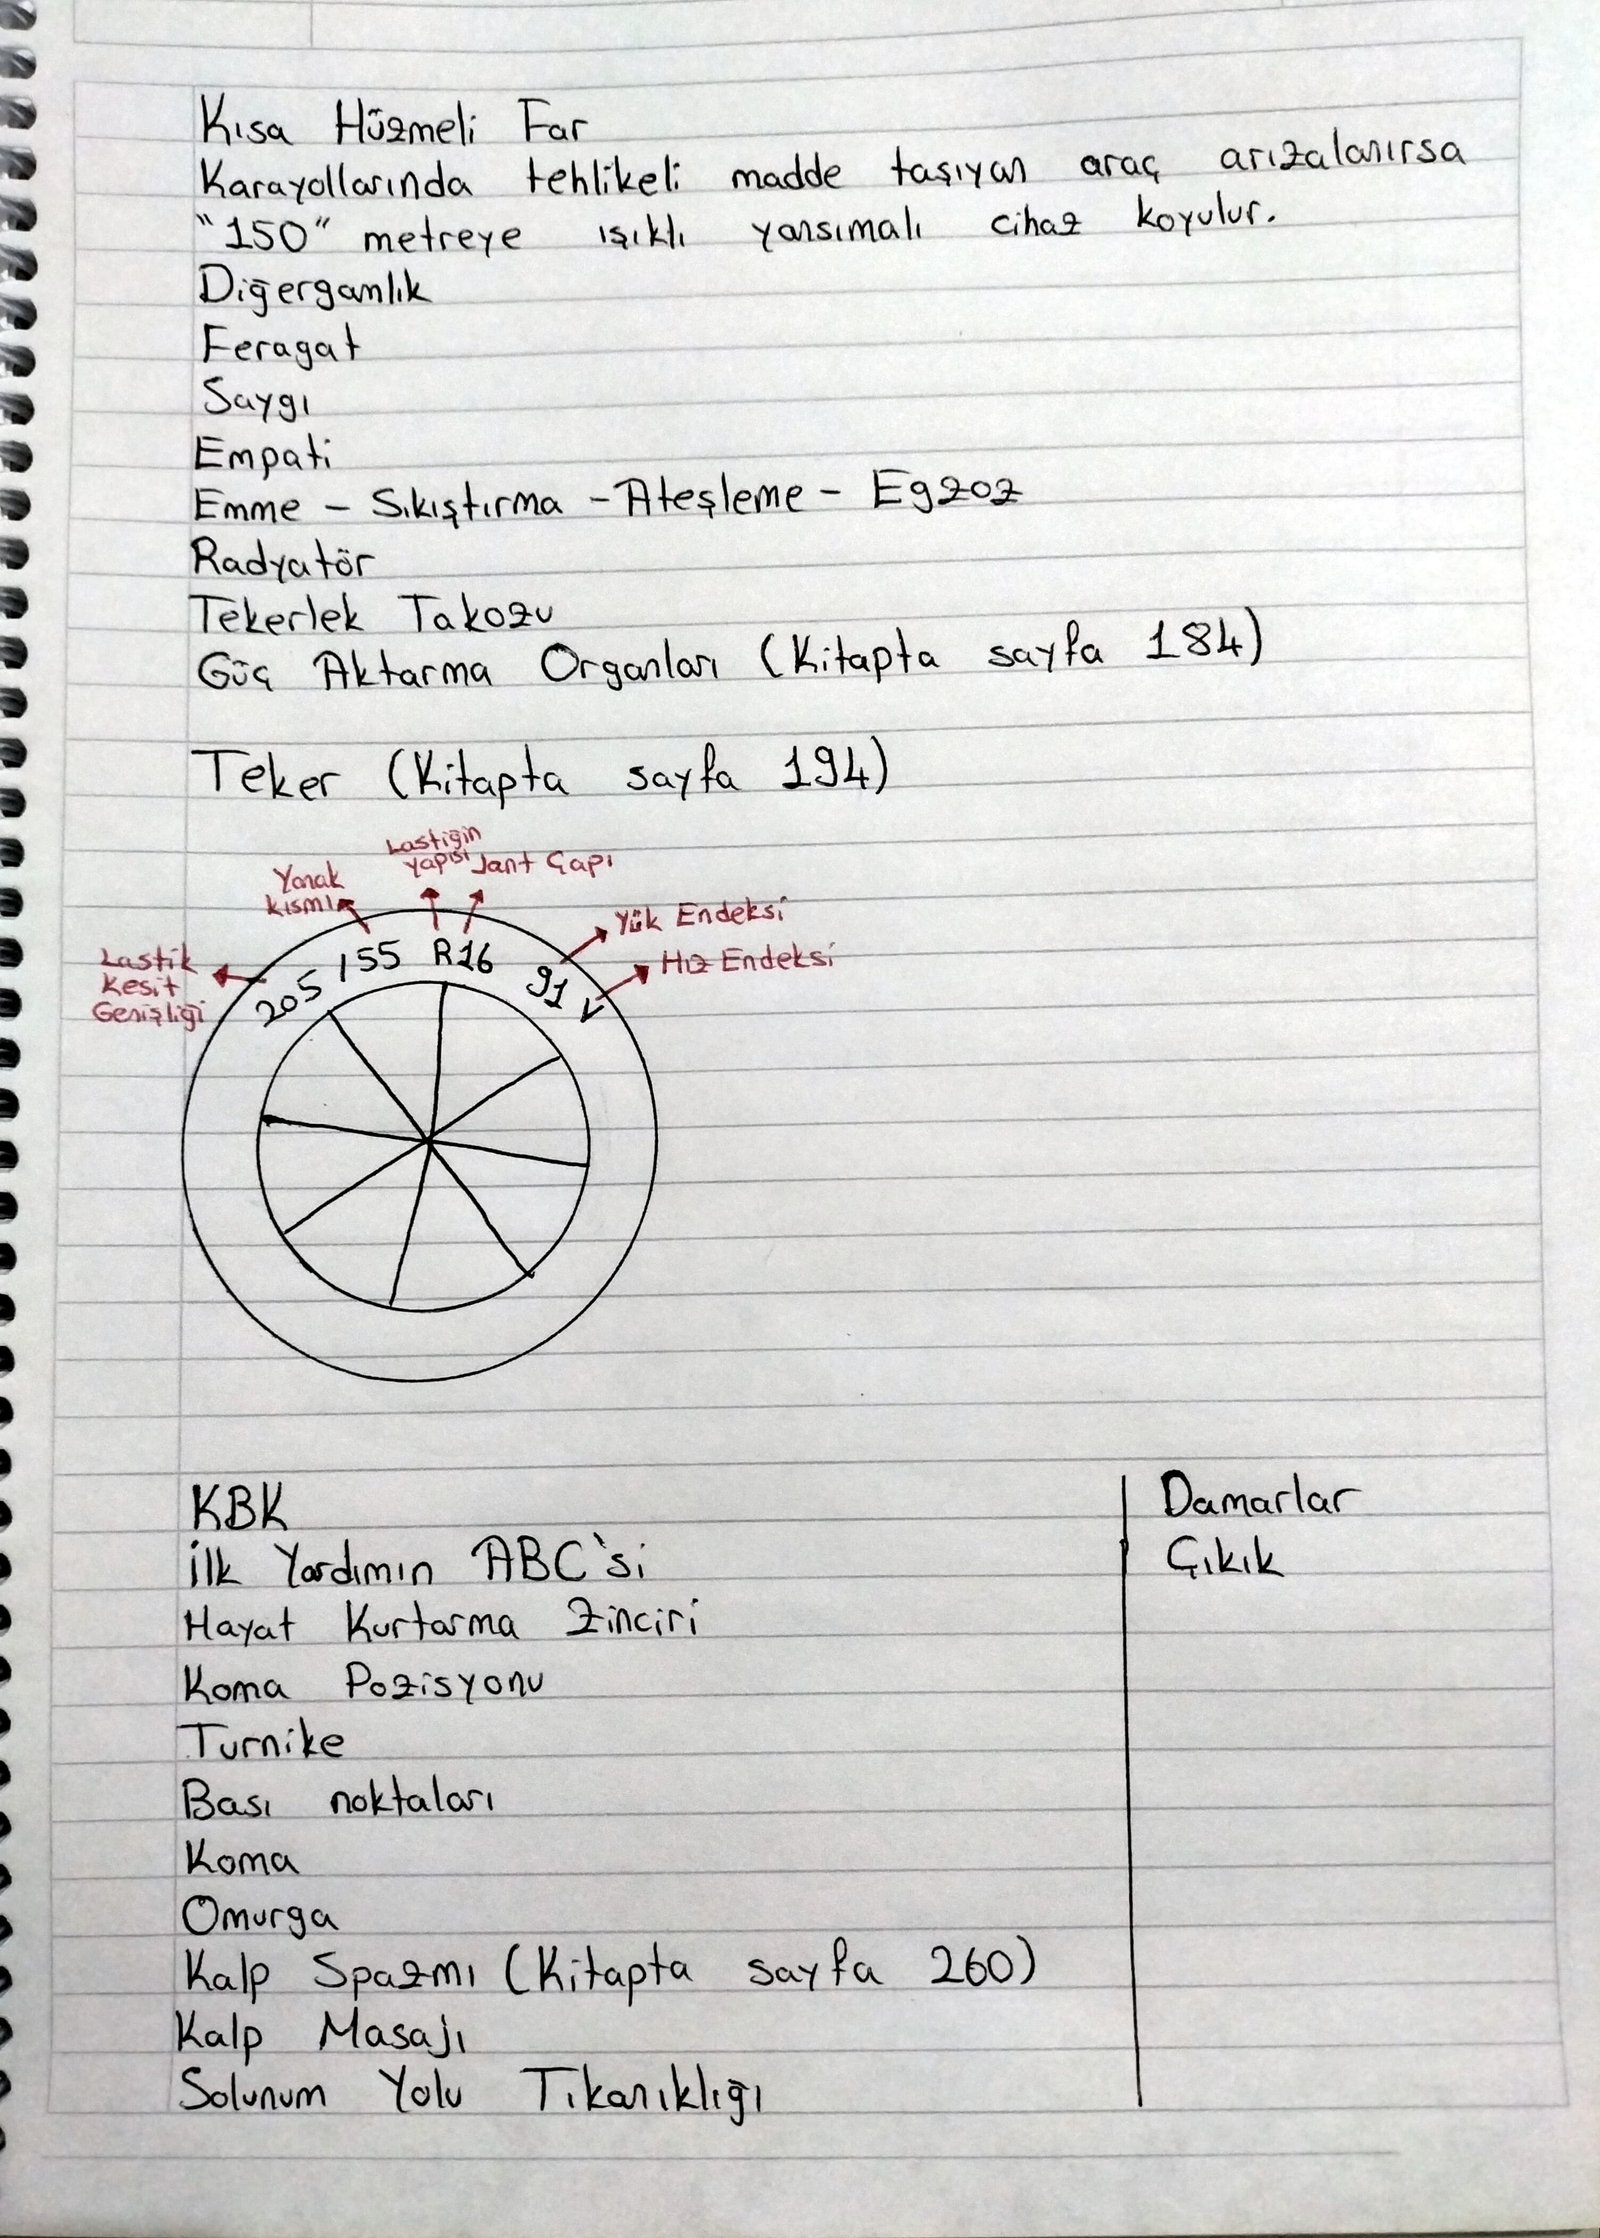 Kısa Hüzmeli Far
Karayollarında tehlikeli madde taşıyan araç arızalanırsa
"150" metreye ışıklı yansımalı cihaz koyulur.
Diğerganlık
Feragat
Saygı
Empati
Emme - Sıkıştırma - Ateşleme - Egzoz
Radyatör
Tekerlek Takozu
Güç Aktarma Organları (Kitapta sayfa 184)
Teker (Kitapta sayfa 194)
Lastiğin
yapısı
Jant Çapı
Yanak
Kısmı
Yük Endeksi
Hız Endeksi
Lastik
Kesit
Genişliği
205 / 55 R16 91 V
KBK
İlk Yardımın ABC'si
Hayat Kurtarma Zinciri
Koma Pozisyonu
Turnike
Bası noktaları
Koma
Omurga
Kalp Spazmı (Kitapta sayfa 260)
Kalp Masajı
Solunum Yolu Tıkanıklığı
Damarlar
Çıkık